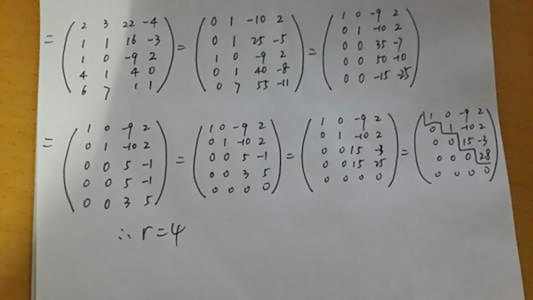 = ( 2 3 22 -4 ) = ( 0 1 -10 2 ) = ( 1 0 -9 2 )
1 1 16 -3   0 1 25 -5   0 1 -10 2
1 0 -9 2   1 0 -9 2   0 0 35 -7
4 1 4 0   0 1 40 -8   0 0 50 -10
6 7 1 1   0 7 55 -11   0 0 -15 -25
= ( 1 0 -9 2 ) = ( 1 0 -9 2 ) = ( 1 0 -9 2 ) = ( 1 0 -9 2 )
0 1 -10 2   0 1 -10 2   0 1 -10 2   0 1 -10 2
0 0 5 -1   0 0 5 -1   0 0 15 -3   0 0 15 -3
0 0 5 -1   0 0 3 5   0 0 15 25   0 0 0 28
0 0 3 5   0 0 0 0   0 0 0 0   0 0 0 0
∴ r = 4